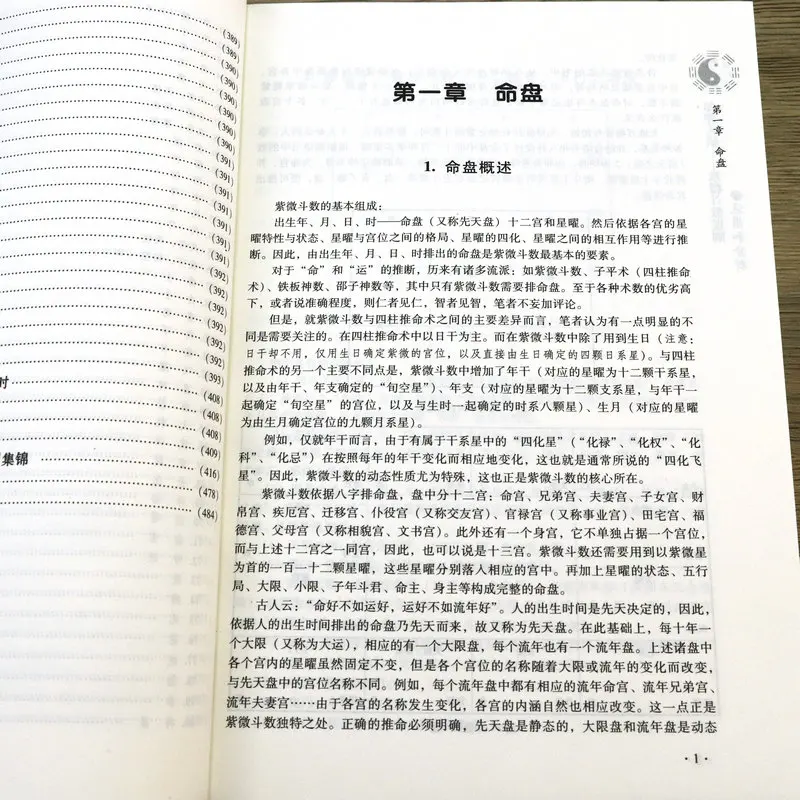 (389)
(389)
(390)
(390)
(390)
(390)
(390)
(391)
(391)
(391)
(391)
(391)
(392)
(392)
(392)
(392)
(392)
(393)
时
(408)
(408)
(408)
(409)
集锦
(416)
(478)
(484)
第一章 命盘
第一章 命盘
1. 命盘概述
紫微斗数的基本组成：
出生年、月、日、时——命盘（又称先天盘）十二宫和星曜。然后依据各宫的星
曜特性与状态、星曜与宫位之间的格局、星曜的四化、星曜之间的相互作用等进行推
断。因此，由出生年、月、日、时排出的命盘是紫微斗数最基本的要素。
对于“命”和“运”的推断，历来有诸多流派：如紫微斗数、子平术（四柱推命
术）、铁板神数、邵子神数等，其中只有紫微斗数需要排命盘。至于各种术数的优劣高
下，或者说准确程度，则仁者见仁，智者见智，笔者不妄加评论。
但是，就紫微斗数与四柱推命术之间的主要差异而言，笔者认为有一点明显的不
同是需要关注的。在四柱推命术中以日干为主。而在紫微斗数中除了用到生日（注意：
日干却不用，仅用生日确定紫微的宫位，以及直接由生日确定的四颗日系星）。与四柱
推命术的另一个主要不同点是，紫微斗数中增加了年干（对应的星曜为十二颗干系星，
以及由年干、年支确定的“旬空星”）、年支（对应的星曜为十二颗支系星，与年干一
起确定“旬空星”的宫位，以及与生时一起确定的时系八颗星）、生月（对应的星曜
为由生月确定宫位的九颗月系星）。
例如，仅就年干而言，由于有属于干系星中的“四化星”（“化禄”、“化权”、“化
科”、“化忌”）在按照每年的年干变化而相应地变化，这也就是通常所说的“四化飞
星”。因此，紫微斗数的动态性质尤为特殊，这也正是紫微斗数的核心所在。
紫微斗数依据八字排命盘，盘中分十二宫：命宫、兄弟宫、夫妻宫、子女宫、财
帛宫、疾厄宫、迁移宫、仆役宫（又称交友宫）、官禄宫（又称事业宫）、田宅宫、福
德宫、父母宫（又称相貌宫、文书宫）。此外还有一个身宫，它不单独占据一个宫位，
而与上述十二宫之一同宫，因此，也可以说是十三宫。紫微斗数还需要用到以紫微星
为首的一百一十二颗星曜，这些星曜分别落人相应的宫中。再加上星曜的状态、五行
局、大限、小限、子年斗君、命主、身主等构成完整的命盘。
古人云：“命好不如运好，运好不如流年好”。人的出生时间是先天决定的，因此，
依据人的出生时间排出的命盘乃先天而来，故又称为先天盘。在此基础上，每十年一
个大限（又称为大运），相应的有一个大限盘，每个流年也有一个流年盘。上述诸盘中
各个宫内的星曜虽然固定不变，但是各个宫位的名称随着大限或流年的变化而改变，
与先天盘中的宫位名称不同。例如，每个流年盘中都有相应的流年命宫、流年兄弟宫、
流年夫妻宫……由于各宫的名称发生变化，各宫的内涵自然也相应改变。这一点正是
紫微斗数独特之处。正确的推命必须明确，先天盘是静态的，大限盘和流年盘是动态
·1·